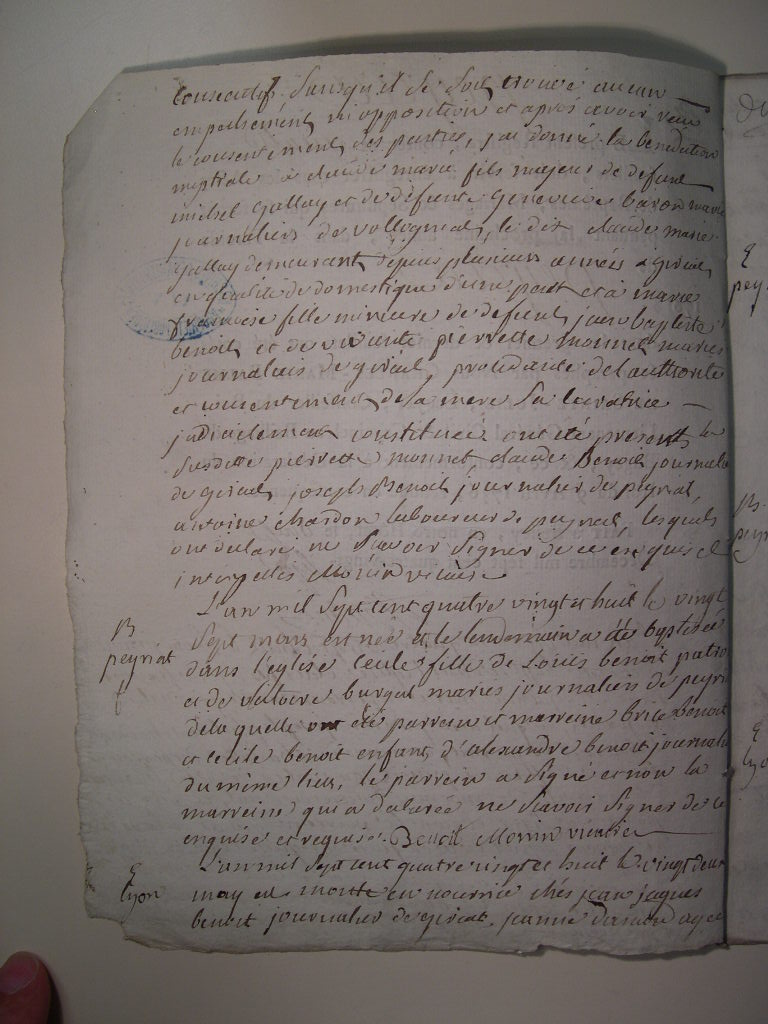 consecutif sans qu'il se soit trouvé aucun
empechement ni opposition et après avoir veu
le consentement des parties, j'ai donné la benediction
nuptiale a claude marie fils majeur de defunt
michel gallay et de défunte Genevieve baron mariés
journaliers de vollognat, le dit claude marie
gallay demeurant depuis plusieurs années a giriat
en qualité de domestique d'une part et a marie
françoise fille mineure de defunt jean baptiste
benoit et de vivante pierrette monnet mariés
journaliers de giriat, procedante de l'authorité
et consentement de sa mere sa curatrice
judicielement constituée ont été presents la
susditte pierrette monnet claude Benoit journalier
de giriat, joseph Benoit journalier de peyriat,
antoine chardon laboureur de peyriat, lesquels
ont declaré ne savoir signer de ce enquis et
interpellés Morin vicaire
L'an mil sept cent quatre vingt et huit le vingt
B
peyriat
sept mars est née et le lendemain a été baptisée
dans l'église Cecile fille de Louis benoit
et de victoire burgat mariés journaliers de peyri
de la quelle ont été parrein et marreine brice Benoit
et cecile benoit enfants d'alexandre benoit journali
du même lieu, le parrein a signé et non la
marreine qui a declarée ne sçavoir signer de ce
enquise et requise. Benoit Morin vicaire
L'an mil sept cent quatre vingt et huit le vingt deux
S
lyon
may est morte en nourrice chés jean jaques
benoit journalier de giriat, jeanne agée
peyr
B
peyr
S
lyo